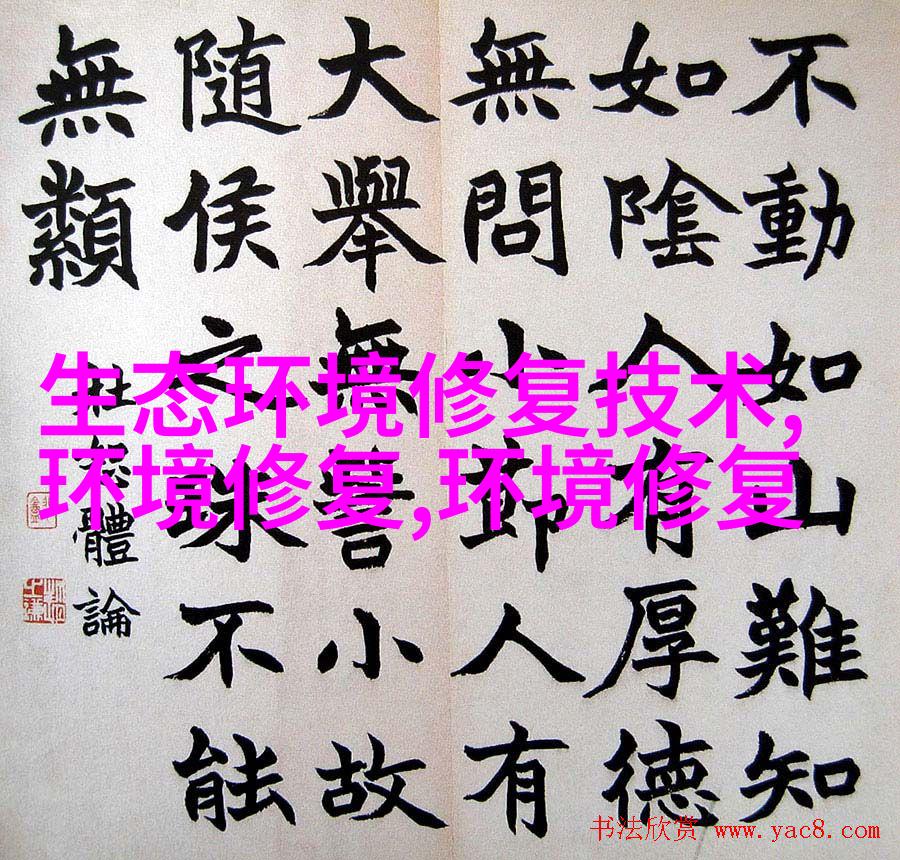 不動如山難知
如陰人有厚德
無問小莭人有
大舉無訾小故
隨侯之珠不能
無纇
杜恕體論
生态环境修复技术,
环境修复,环境修复
书法欣赏 www.yac8.com